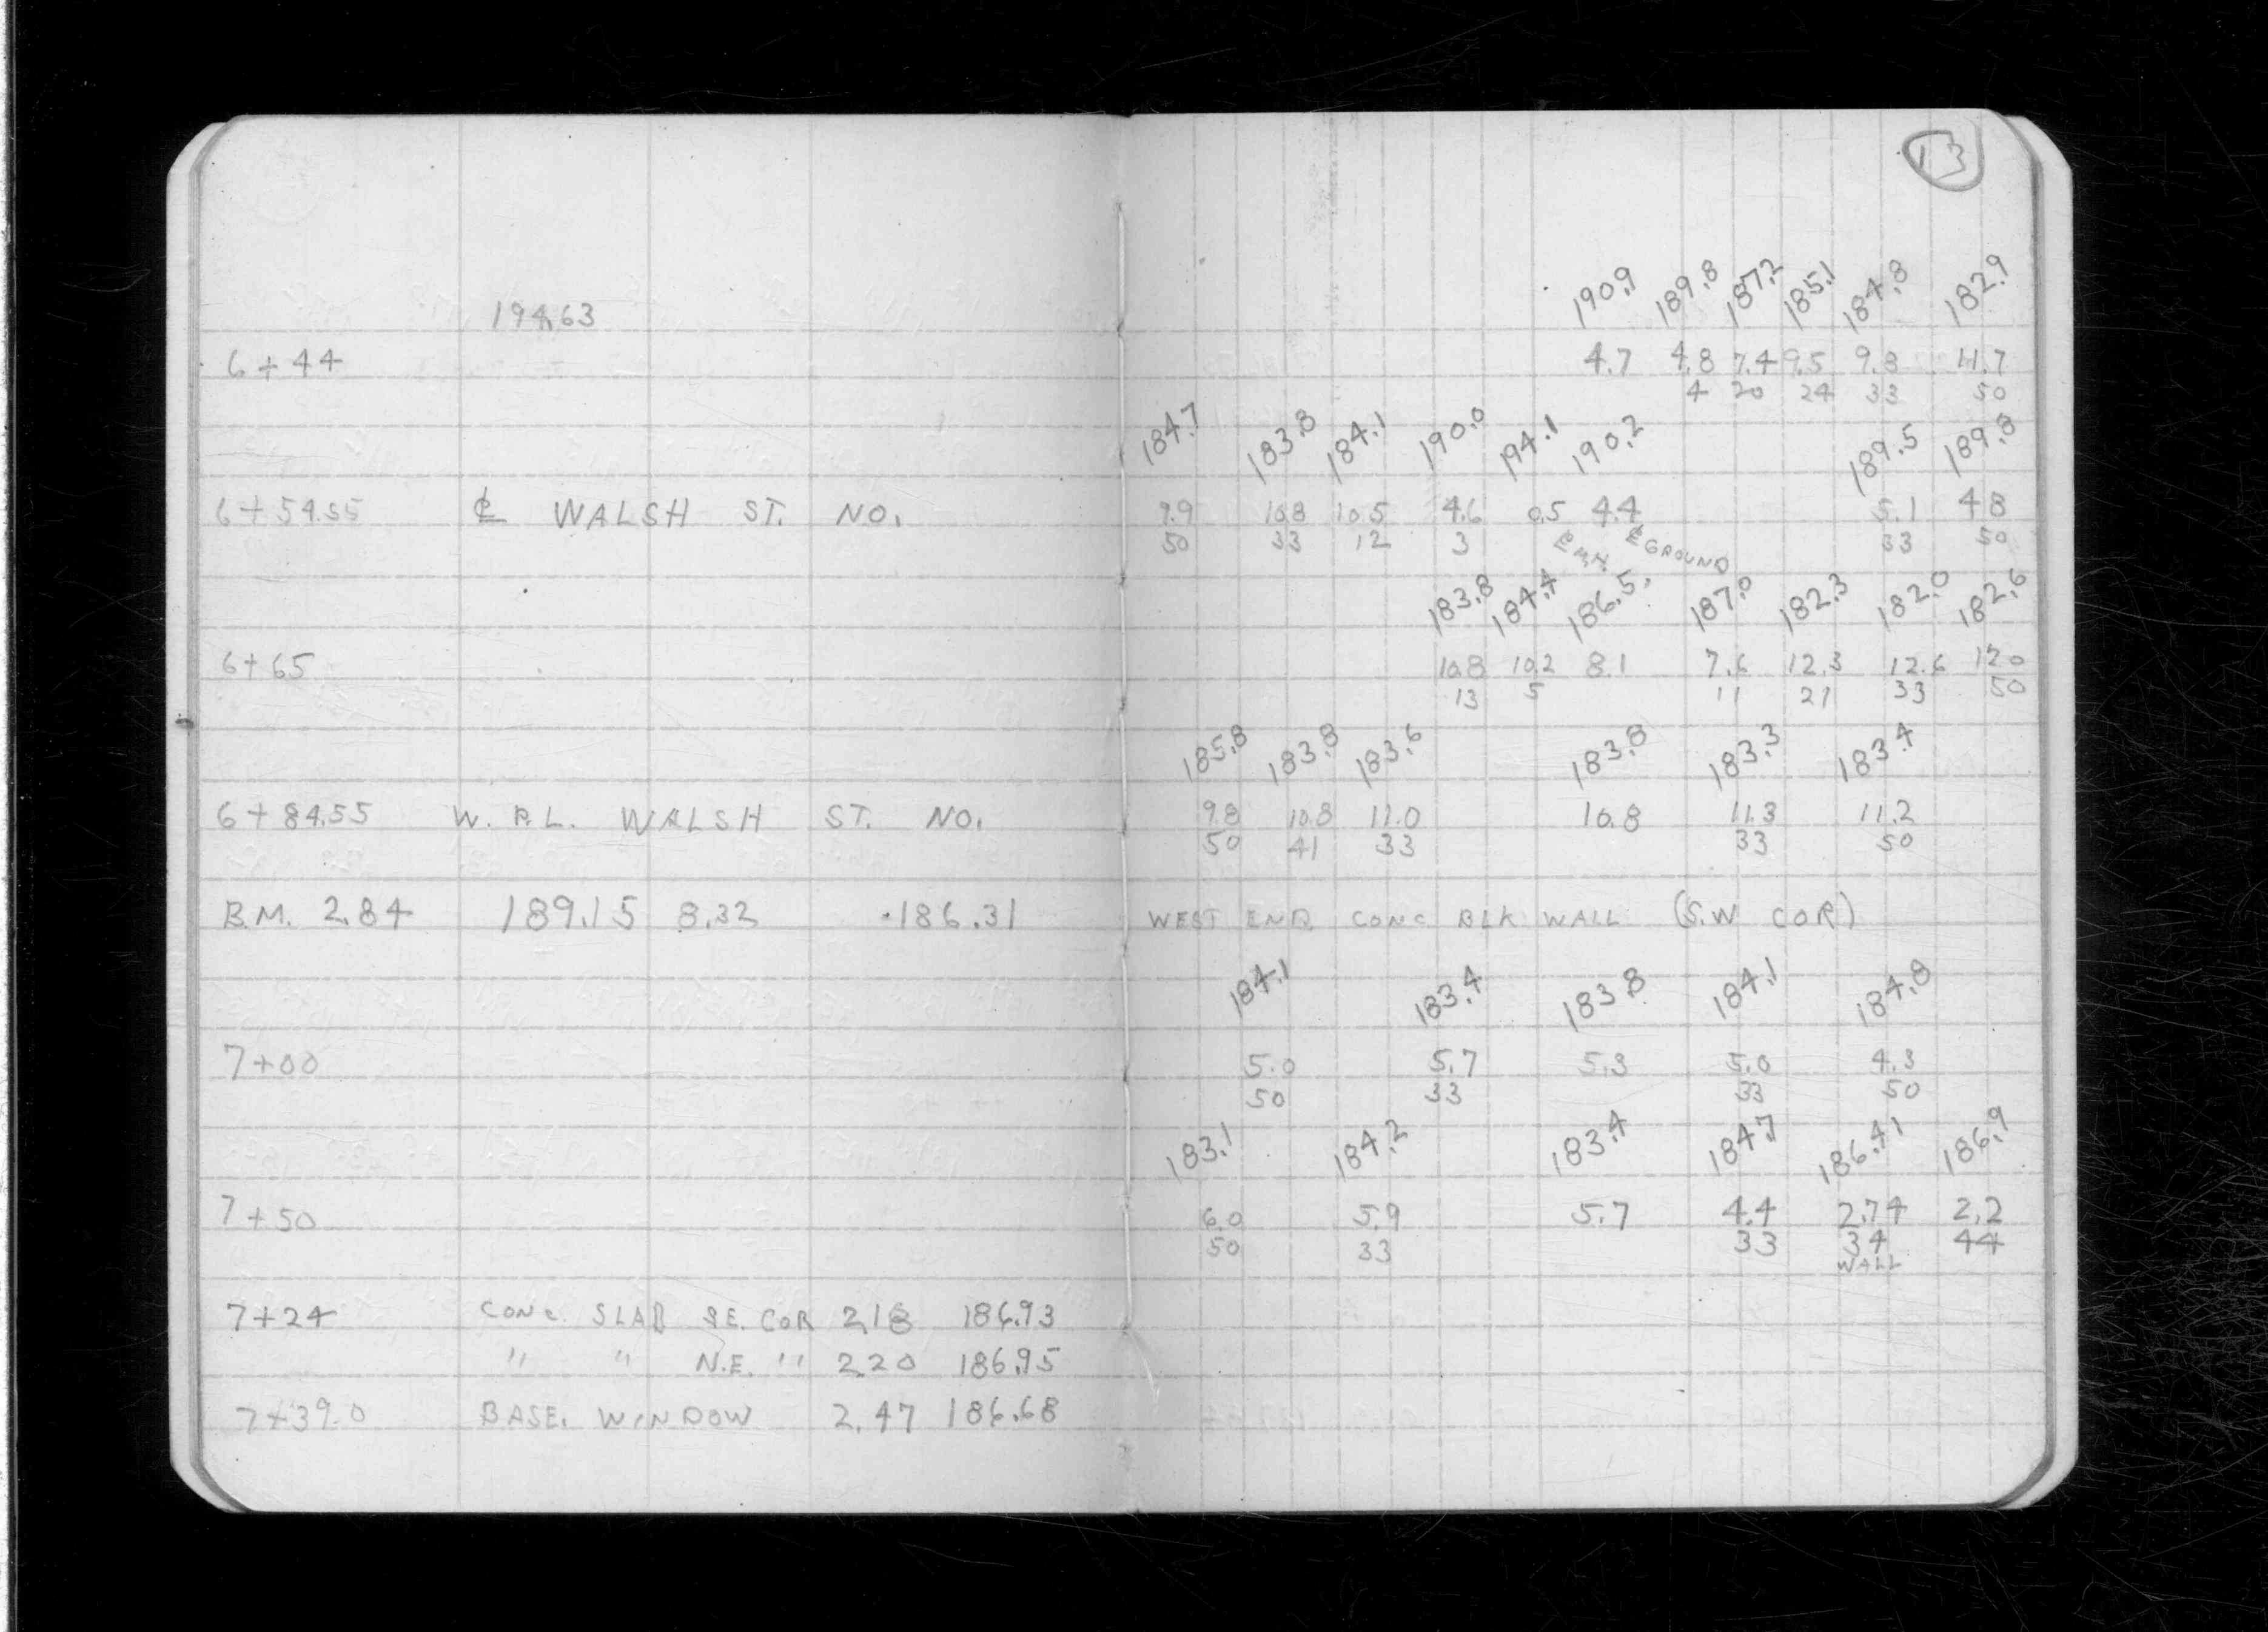 13
190.9 189.8 187.2 185.1 184.8 182.9
194.63
6+44 4.7 4.8 7.4 9.5 9.8 11.7
4 20 24 33 50
184.7 183.8 184.1 190.0 194.1 190.2 189.5 189.8
6+54.55 ℄ WALSH ST. NO. 9.9 10.8 10.5 4.6 0.5 4.4 5.1 4.8
50 33 12 3 ℄ M.H. ℄ GROUND 33 50
183.8 184.4 186.5 187.0 182.3 182.0 182.6
6+65 10.8 10.2 8.1 7.6 12.3 12.6 12.0
13 5 11 21 33 50
185.8 183.8 183.6 183.8 183.3 183.4
6+84.55 W. P.L. WALSH ST. NO. 9.8 10.8 11.0 10.8 11.3 11.2
50 41 33 33 50
B.M. 2.84 189.15 8.32 186.31 WEST END CONC BLK WALL (S.W COR)
184.1 183.4 183.8 184.1 184.8
7+00 5.0 5.7 5.3 5.0 4.3
50 33 33 50
183.1 184.2 183.4 184.7 186.41 186.9
7+50 6.0 5.9 5.7 4.4 2.74 2.2
50 33 33 34 44
WALL
7+24 CONC. SLAB S.E. COR 2.18 186.93
" " N.E. " 2.20 186.95
7+39.0 BASE. WINDOW 2.47 186.68